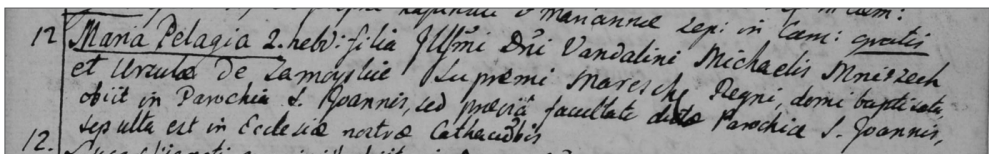 Mariannæ sep: in Cæm:
12 Maria Pelagia 2. hebd: filia Jllsmi Dni Vandalini Michaelis Mniszech
et Urzulæ de Zamoyskie Supremi Maresch: Regni, domi baptisata,
obiit in Parochia S. Joannis, sed præviâ facultate dictæ Parochiæ S. Joannis,
sepulta est in Ecclesiæ nostræ Cathacubis
12.